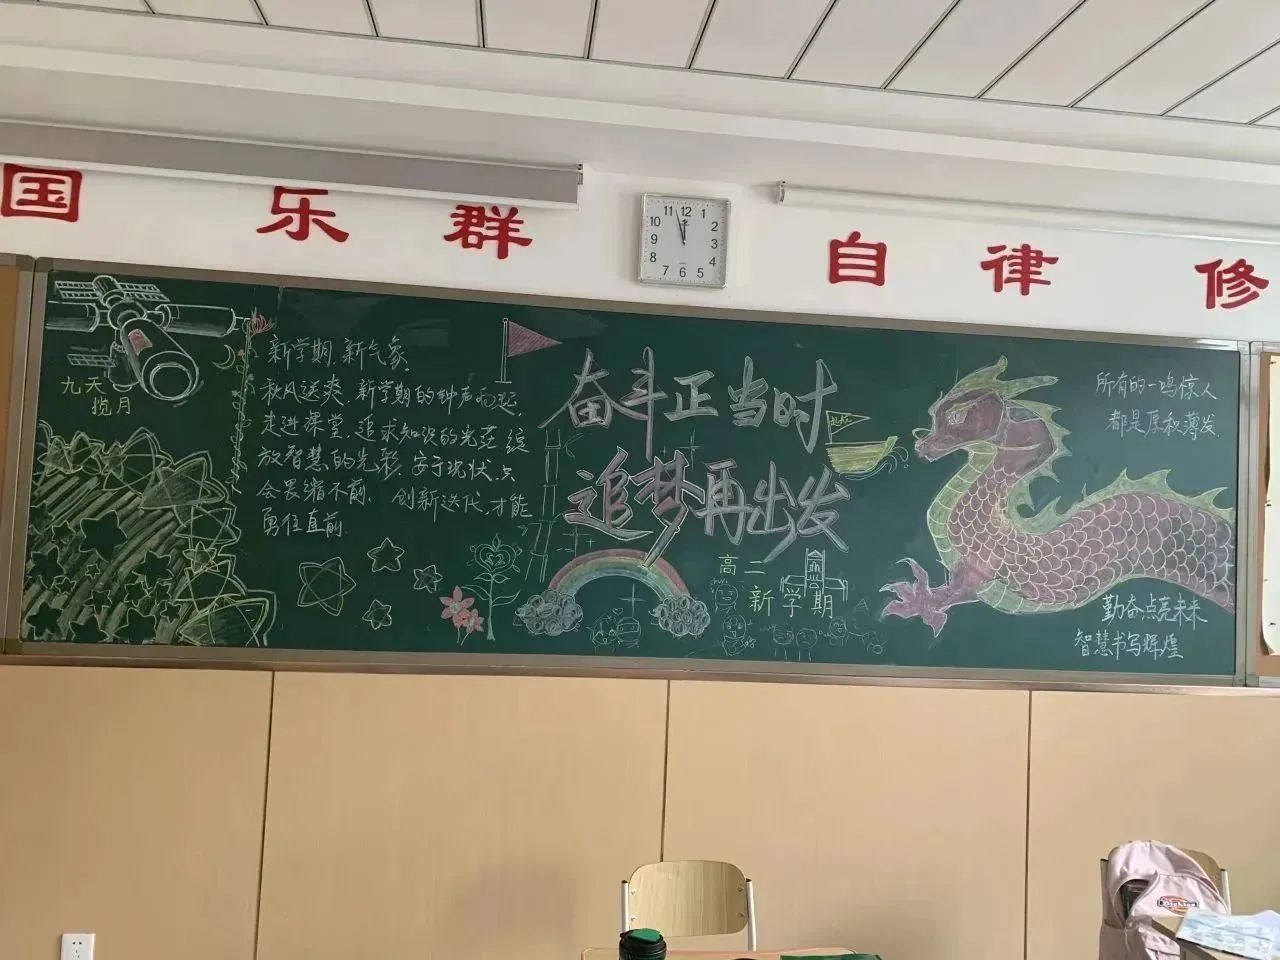 国 乐 群 自 律 修
11 12 1
10 2
9 3
8 4
7 6 5
九天
揽月
新学期,新气象.
秋风送爽,新学期的钟声响起,
走进课堂,追求知识的光茫,绽
放智慧的光彩.安于现状,只
会畏缩不前,创新迭代,才能
勇往直前.
奋斗正当时
追梦再出发
高二
新学期
所有的一鸣惊人
都是厚积薄发.
勤奋点亮未来
智慧书写辉煌
Dickies